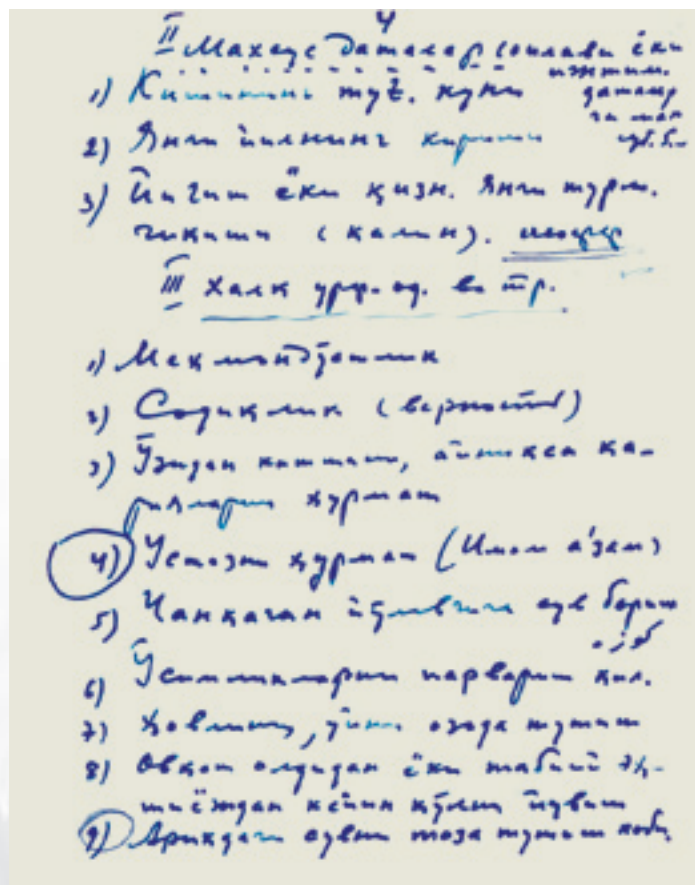 4
II Махсус даталар соилави ёки
ижтим.
1) Кишининг туғ. куни даталар
2) Янги йилнинг кириши
3) Йигит ёки қизн. Янги турм.
чиқиши (калин).
III Халк урф-од. ва тр.
1) Меҳмондўстлик
2) Содиқлик (верность)
3) Ўзидан катталар, айниқса ка-
рияларни ҳурмат
4) Устозни ҳурмат (Имом аъзам)
5) Чанқаган йўловчига сув бериш
6) Ўсимликларни парвариш қил.
7) Ҳовлини, уйни озода тутиш
8) Овқат олдидан ёки табиий эҳ-
тиёждан кейин қўлни ювиш
9) Ариқдаги сувни тоза тутиш каби